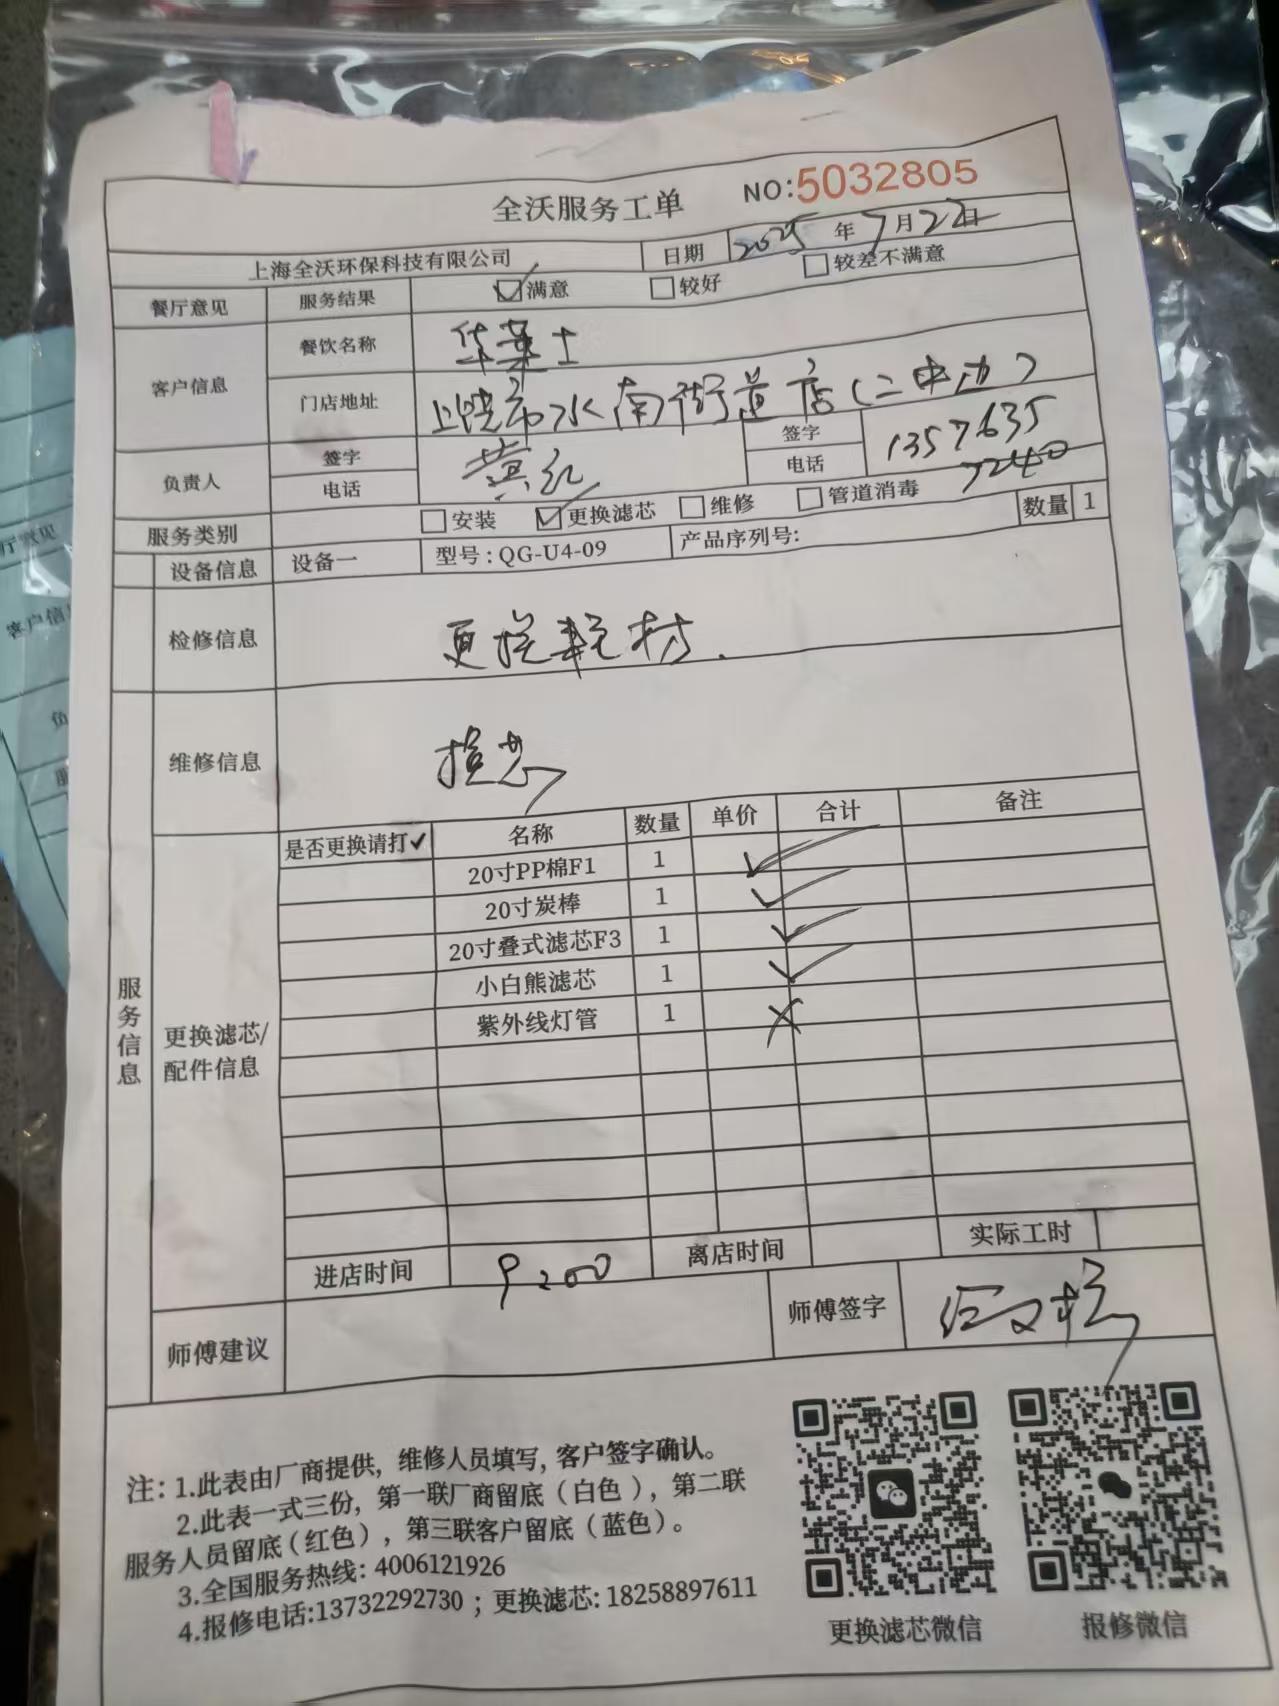 全沃服务工单 NO:5032805
上海全沃环保科技有限公司 日期 2025年7月22日
餐厅意见 服务结果 ☑满意 □较好 □较差不满意
客户信息 餐饮名称 华莱士
门店地址 上饶市水南街道店(二中边)
负责人 签字 黄红 签字
电话 电话 13576357240
服务类别 □安装 ☑更换滤芯 □维修 □管道消毒
设备信息 设备一 型号:QG-U4-09 产品序列号: 数量 1
检修信息 更换耗材.
服务信息
维修信息 换芯
更换滤芯/配件信息
是否更换请打✓ 名称 数量 单价 合计 备注
20寸PP棉F1 1 ✓
20寸炭棒 1 ✓
20寸叠式滤芯F3 1 ✓
小白熊滤芯 1 ✓
紫外线灯管 1 ×
进店时间 9:00 离店时间 实际工时
师傅建议 师傅签字
注:1.此表由厂商提供,维修人员填写,客户签字确认。
2.此表一式三份,第一联厂商留底(白色),第二联
服务人员留底(红色),第三联客户留底(蓝色)。
3.全国服务热线:4006121926
4.报修电话:13732292730;更换滤芯:18258897611
更换滤芯微信 报修微信
厅意见
客户信息